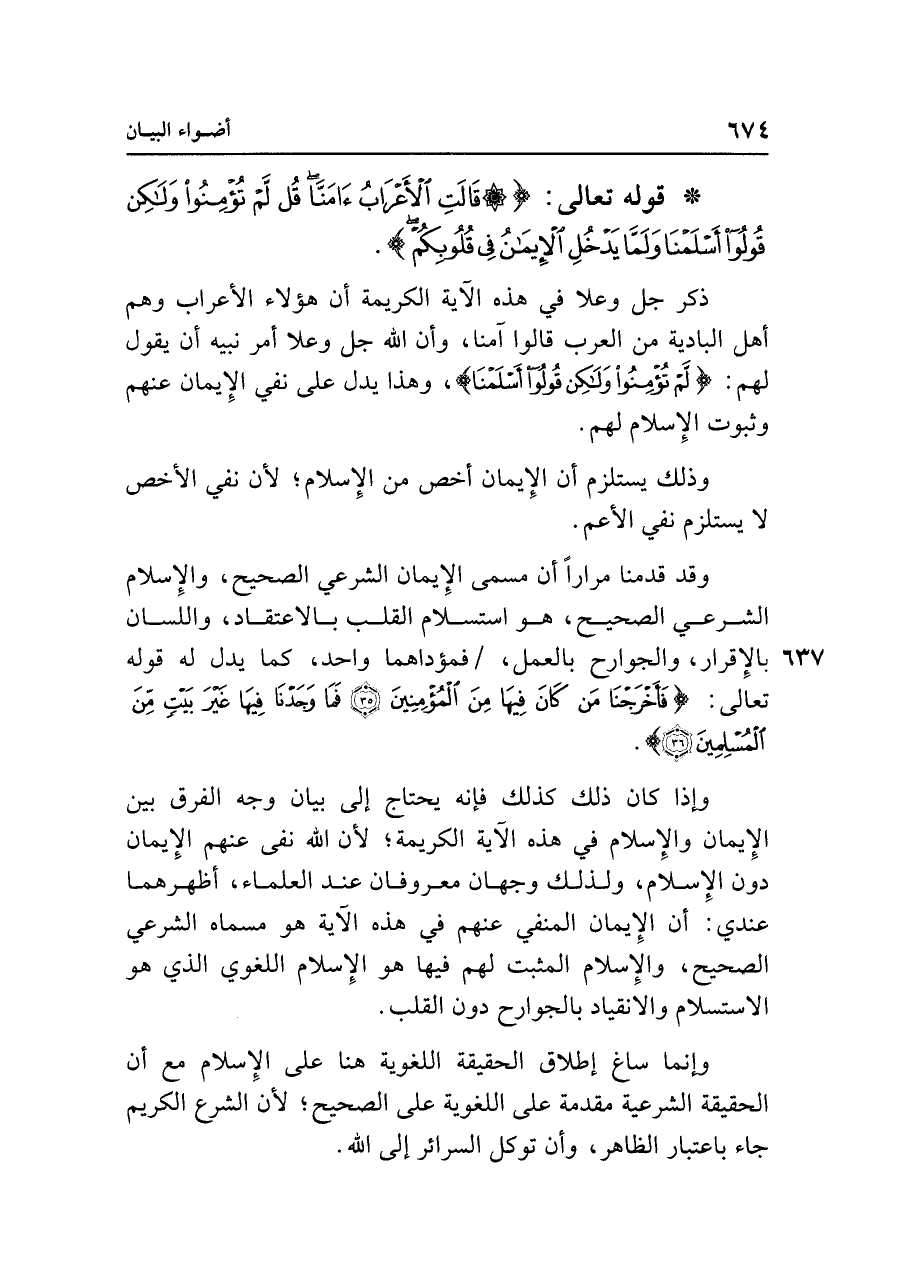 ٦٧٤ أضــواء البيــان
* قوله تعالى: ﴿ ۞ قَالَتِ ٱلْأَعْرَابُ ءَامَنَّاۖ قُل لَّمْ تُؤْمِنُوا۟ وَلَـٰكِن
قُولُوٓا۟ أَسْلَمْنَا وَلَمَّا يَدْخُلِ ٱلْإِيمَـٰنُ فِى قُلُوبِكُمْۖ ﴾.
ذكر جل وعلا في هذه الآية الكريمة أن هؤلاء الأعراب وهم
أهل البادية من العرب قالوا آمنا، وأن الله جل وعلا أمر نبيه أن يقول
لهم: ﴿ لَّمْ تُؤْمِنُوا۟ وَلَـٰكِن قُولُوٓا۟ أَسْلَمْنَا﴾، وهذا يدل على نفي الإِيمان عنهم
وثبوت الإِسلام لهم.
وذلك يستلزم أن الإِيمان أخص من الإِسلام؛ لأن نفي الأخص
لا يستلزم نفي الأعم.
وقد قدمنا مراراً أن مسمى الإِيمان الشرعي الصحيح، والإِسلام
الشـرعـي الصحيـح، هـو استسـلام القلـب بـالاعتقـاد، واللسـان
٦٣٧ بالإِقرار، والجوارح بالعمل، /فمؤداهما واحد، كما يدل له قوله
تعالى: ﴿ فَأَخْرَجْنَا مَن كَانَ فِيهَا مِنَ ٱلْمُؤْمِنِينَ ۝٣٥ فَمَا وَجَدْنَا فِيهَا غَيْرَ بَيْتٍ مِّنَ
ٱلْمُسْلِمِينَ ۝٣٦﴾.
وإذا كان ذلك كذلك فإنه يحتاج إلى بيان وجه الفرق بين
الإِيمان والإِسلام في هذه الآية الكريمة؛ لأن الله نفى عنهم الإِيمان
دون الإِسـلام، ولـذلـك وجهـان معـروفـان عنـد العلمـاء، أظهـرهمـا
عندي: أن الإِيمان المنفي عنهم في هذه الآية هو مسماه الشرعي
الصحيح، والإِسلام المثبت لهم فيها هو الإِسلام اللغوي الذي هو
الاستسلام والانقياد بالجوارح دون القلب.
وإنما ساغ إطلاق الحقيقة اللغوية هنا على الإِسلام مع أن
الحقيقة الشرعية مقدمة على اللغوية على الصحيح؛ لأن الشرع الكريم
جاء باعتبار الظاهر، وأن توكل السرائر إلى الله.